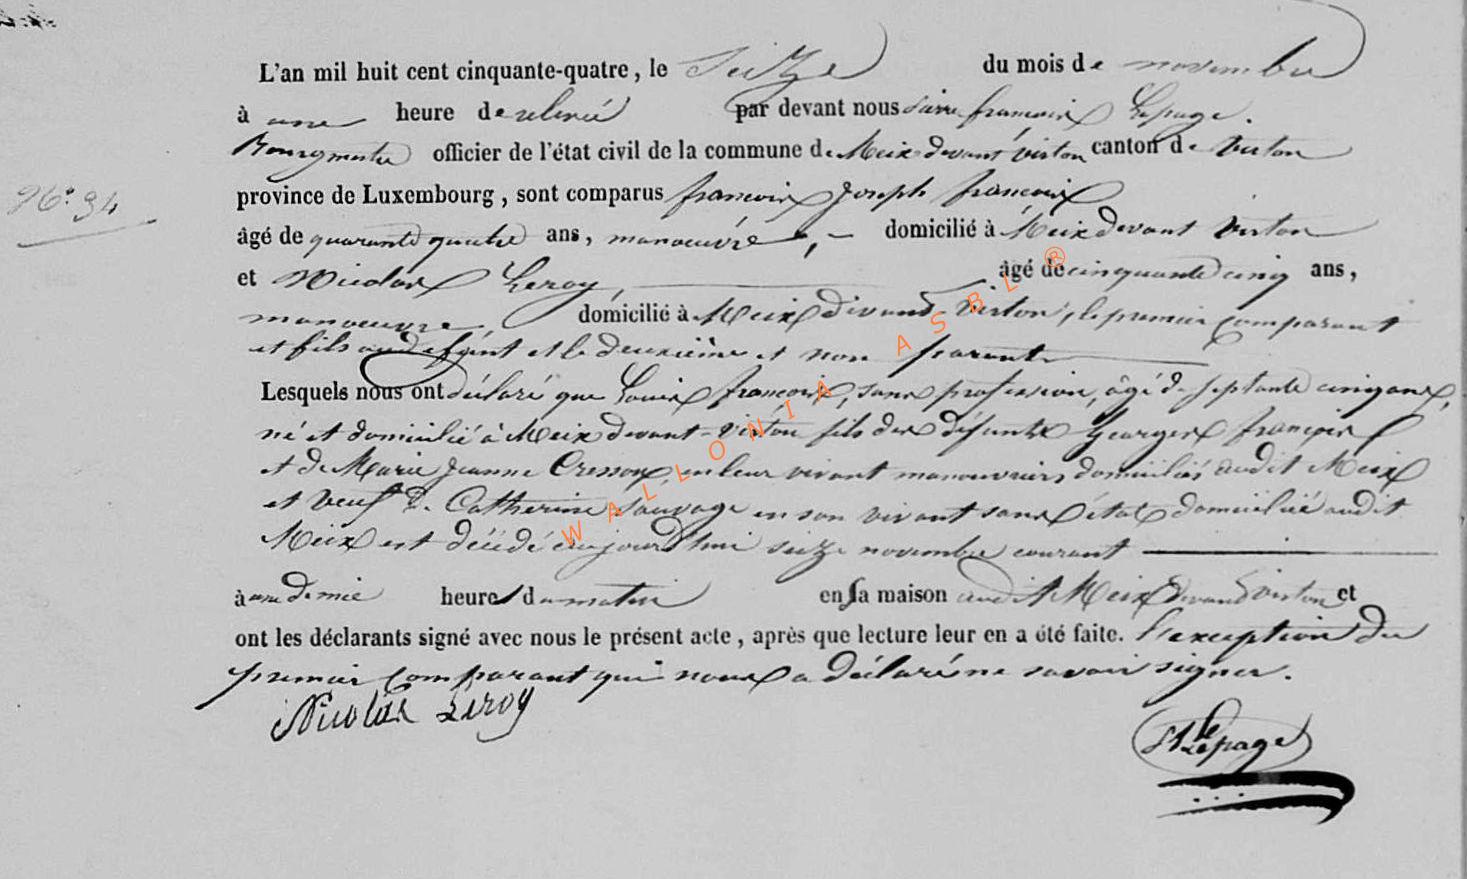 L'an mil huit cent cinquante-quatre, le Seize du mois de novembre
à une heure de relevé par devant nous Pierre françois Lepage.
Bourgmestre officier de l'état civil de la commune de Meix devant virton canton de Virton
province de Luxembourg, sont comparus francois Joseph francois
âgé de quarante quatre ans, manoeuvre, – domicilié à Meix devant Virton
N°. 34
et Nicolas Leroy, âgé de cinquante cinq ans,
manoeuvre, domicilié à Meix devant Virton, le premier comparant
et fils au défunt et le deuxième et non parent
Lesquels nous ont déclaré que Louis francois, sans profession, âgé de septante cinq ans,
né et domicilié à Meix devant-virton fils des défunts Georges françois
et de Marie Jeanne Cresson, en leur vivant manouvriers domiciliés audit Meix
et veuf de Catherine Sauvage en son vivant sans état domiciliée audit
Meix est décédé aujourd'hui seize novembre courant
à une demie heure du matin en sa maison audit Meix devant Virton et
ont les déclarants signé avec nous le présent acte, après que lecture leur en a été faite. l'exception du
premier comparant qui nous a déclaré ne savoir signer.
Nicolas Leroy
Lepage
WALLONIA ASBL ®